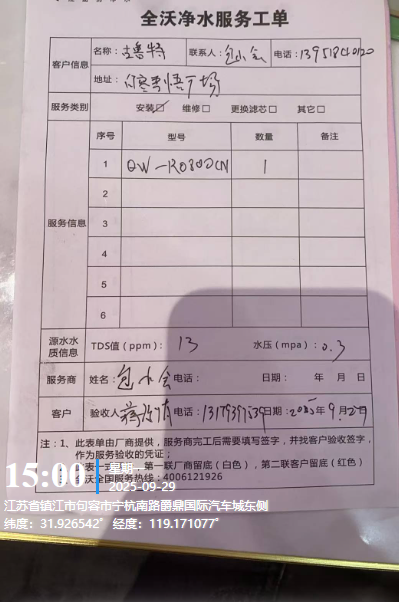 全沃净水服务工单
客户信息 名称: 吉鲁特 联系人: 包小会 电话:
地址:
服务类别 安装☑ 维修□ 更换滤芯□ 其它□
服务信息 序号 型号 数量 备注
1 QW-RO800CN 1
2
3
4
5
6
源水水质信息 TDS值(ppm): 13 水压(mpa): 0.3
服务商 姓名: 包小会 电话: 日期: 年 月 日
客户 验收人: 电话: 日期: 2025年9月 日
注:1、此表单由厂商提供,服务商完工后需要填写签字,并找客户验收签字,
作为服务验收的凭证;
表一式 第一联厂商留底(白色),第二联客户留底(红色)
沃全国服务热线:4006121926
15:00 星期一
2025-09-29
江苏省镇江市句容市宁杭南路爵鼎国际汽车城东侧
纬度: 31.926542° 经度: 119.171077°